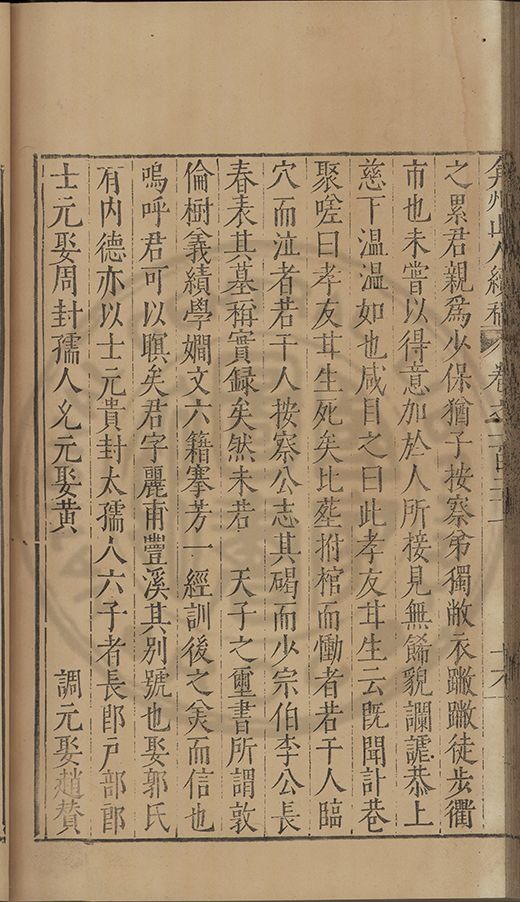 弇州山人續稿 卷之一百二十一 十六
之累君親爲少保猶子按察弟獨敝衣蹩蹩徒步衢
市也未嘗以得意加於人所接見無餙貌讕謔恭上
慈下溫溫如也咸目之曰此孝友甘生云旣聞訃巷
聚嗟曰孝友甘生死矣比塟拊棺而慟者若干人臨
穴而泣者若干人按察公志其碣而少宗伯李公長
春表其墓稱實録矣然未若 天子之璽書所謂敦
倫樹義績學嫺文六籍搴芳一經訓後之爲而信也
嗚呼君可以瞑矣君字麗甫豐溪其別號也娶郭氏
有内德亦以士元貴封太孺人六子者長卽戸部郎
士元娶周封孺人允元娶黄 調元娶趙贊